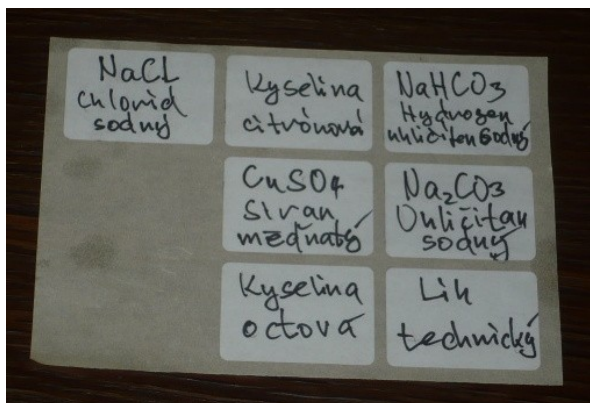 NaCl
Chlorid
sodný
Kyselina
citrónová
NaHCO3
Hydrogen
uhličitan sodný
CuSO4
Síran
měďnatý
Na2CO3
Uhličitan
sodný
Kyselina
octová
Líh
technický